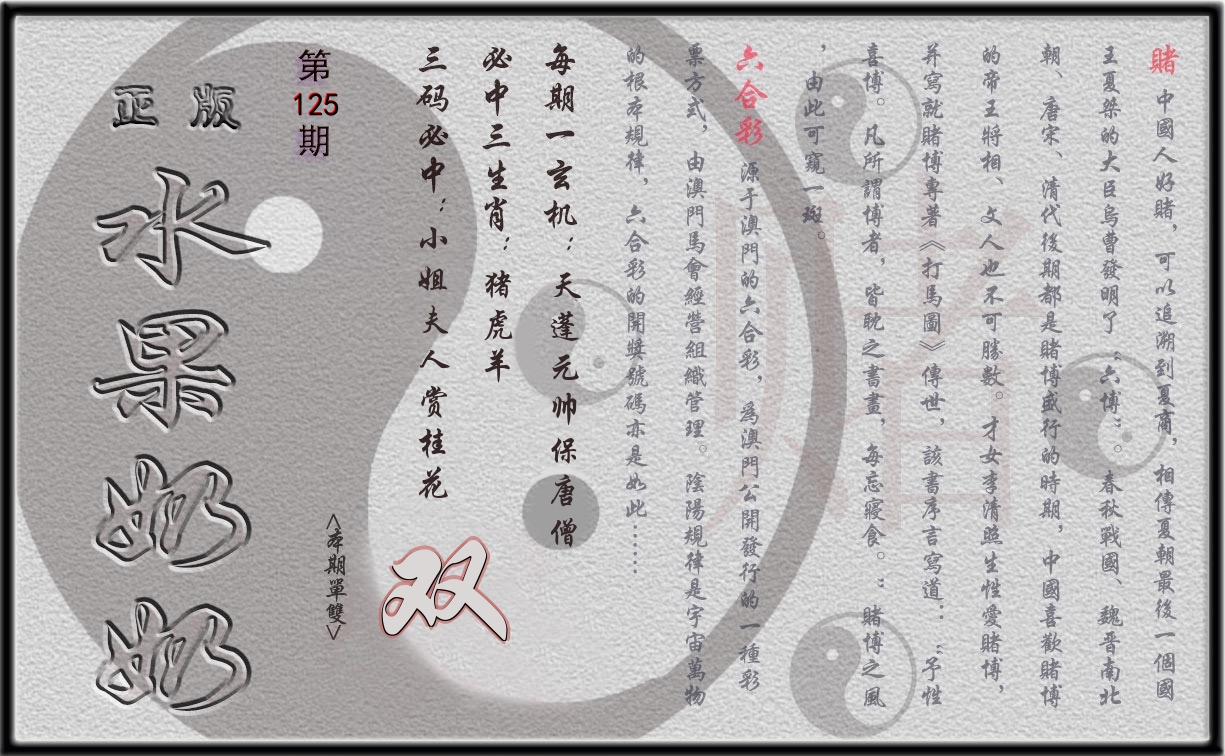 賭 中國人好賭，可以追溯到夏商，相傳夏朝最後一個國
王夏桀的大臣烏曹發明了“六博”。春秋戰國、魏晋南北
朝、唐宋、清代後期都是賭博盛行的時期，中國喜歡賭博
的帝王將相、文人也不可勝數。才女李清照生性愛賭博，
并寫就賭博專著《打馬圖》傳世，該書序言寫道：“予性
喜博。凡所謂博者，皆耽之書晝，每忘寢食。”賭博之風
，由此可窺一斑。
六合彩 源于澳門的六合彩，為澳門公開發行的一種彩
票方式，由澳門馬會經營組織管理。陰陽規律是宇宙萬物
的根本規律，六合彩的開獎號碼亦是如此……
每期一玄机：天蓬元帅保唐僧
必中三生肖：猪虎羊
三码必中：小姐夫人赏桂花
双
<本期單雙>
第
125
期
正版
水果奶奶
賭